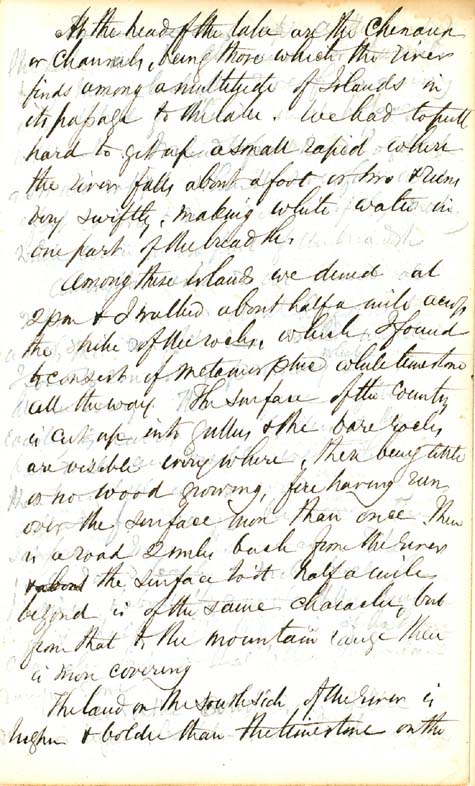 At the head of the lake are the Chenaux
or Channels, being those which the river
finds among a multitude of Islands in
its passage to the lake. We had to pull
hard to get up a small rapid where
the river falls about a foot or two & runs
very swiftly, making white water in
one part of the breadth.
Among these islands we dined at
2 pm & I walked about half a mile across
the strike of the rocks, which I found
to consist of metamorphic white limestone
all the way. The surface of the County
is cut up into gullies & the bare rocks
are visible every where, there being little
or no wood growing, fire having run
over the surface more than once. There
is a road 2 miles back from the river
& about the surface to it half a mile
beyond is of the same character, but
from that to the mountain range there
is more covering
The land on the south side of the river is
higher & bolder than the limestone on the